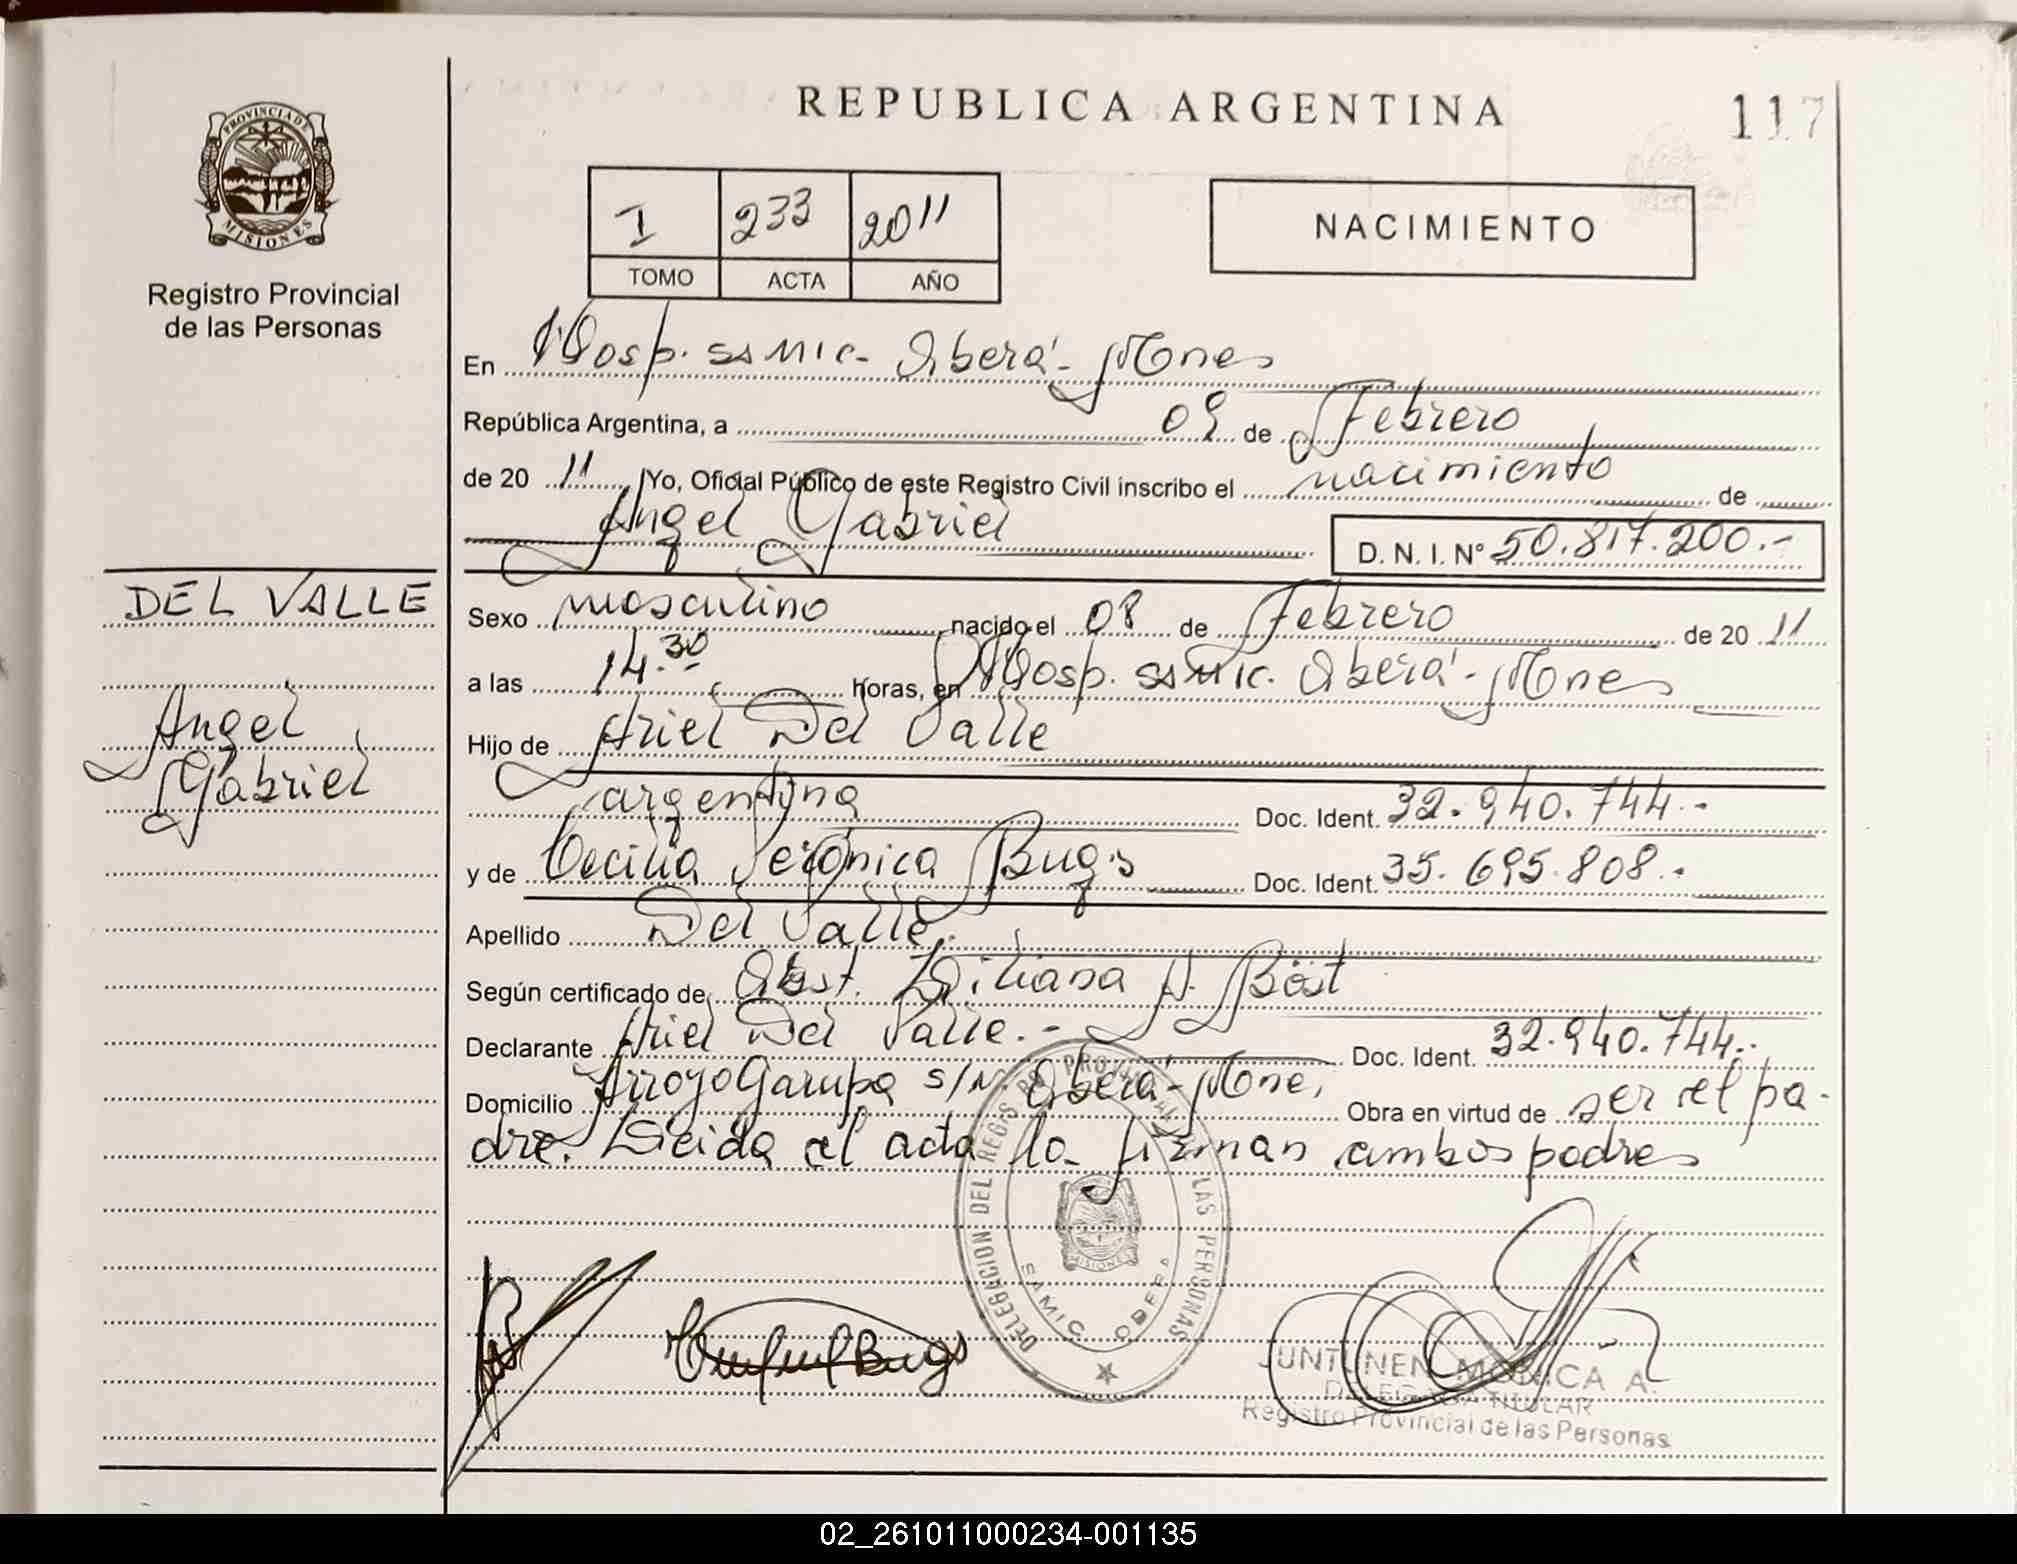 REPUBLICA ARGENTINA
117
PROVINCIA DE
MISIONES
Registro Provincial
de las Personas
I 233 2011
TOMO ACTA AÑO
NACIMIENTO
En Hosp. SAMIC - Oberá - Mones
República Argentina, a 09 de Febrero
de 20 11 Yo, Oficial Público de este Registro Civil inscribo el nacimiento de
Angel Gabriel D. N. I. Nº 50.817.200.-
DEL VALLE
Angel
Gabriel
Sexo masculino nacido el 08 de Febrero de 20 11
a las 14.30 horas, en Hosp. SAMIC. Oberá - Mones
Hijo de Ariel Del Valle
argentina Doc. Ident. 32.940.744.-
y de Cecilia Verónica Bugs Doc. Ident. 35.695.808.-
Apellido Del Valle.-
Según certificado de Obst. Liliana A. Böst
Declarante Ariel Del Valle.- Doc. Ident. 32.940.744.-
Domicilio Arroyo Garupa s/n. Oberá - Mones, Obra en virtud de ser el pa-
dre. Leida el acta la firman ambos padres
DELEGACION DEL REG. PROVINCIAL DE LAS PERSONAS
MISIONES
SAMIC OBERA
Bugs
JUNTUNEN MONICA A.
DELEGADA TITULAR
Registro Provincial de las Personas
02_261011000234-001135